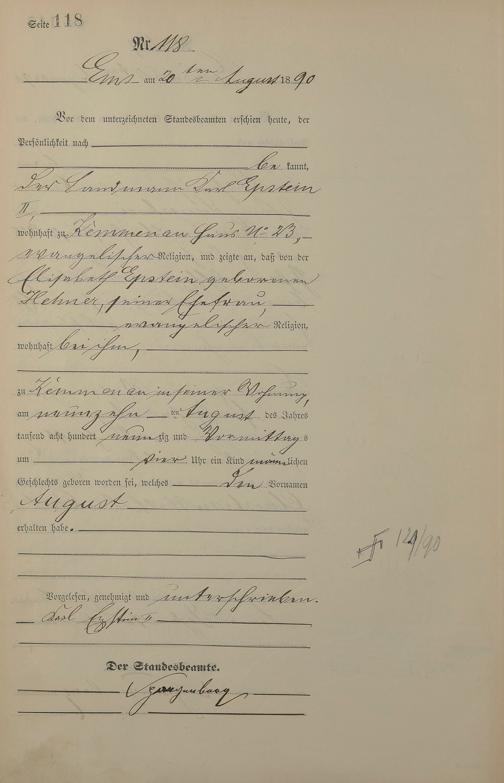 Seite 118
Nr. 118
Ems am 20 ten August 1890
Vor dem unterzeichneten Standesbeamten erschien heute, der
Persönlichkeit nach
be kannt,
der Landmann Karl Epstein
II,
wohnhaft zu Kemmenau Haus No 23,
evangelischer Religion, und zeigte an, daß von der
Elisabeth Epstein gebornen
Hehner, seiner Ehefrau,
evangelischer Religion,
wohnhaft bei ihm,
zu Kemmenau in seiner Wohnung,
am neunzehn ten August des Jahres
tausend acht hundert neunzig und Vormittags
um vier Uhr ein Kind männlichen
Geschlechts geboren worden sei, welches den Vornamen
August
erhalten habe.
Vorgelesen, genehmigt und unterschrieben.
Karl Epstein II
Der Standesbeamte.
Spangenberg